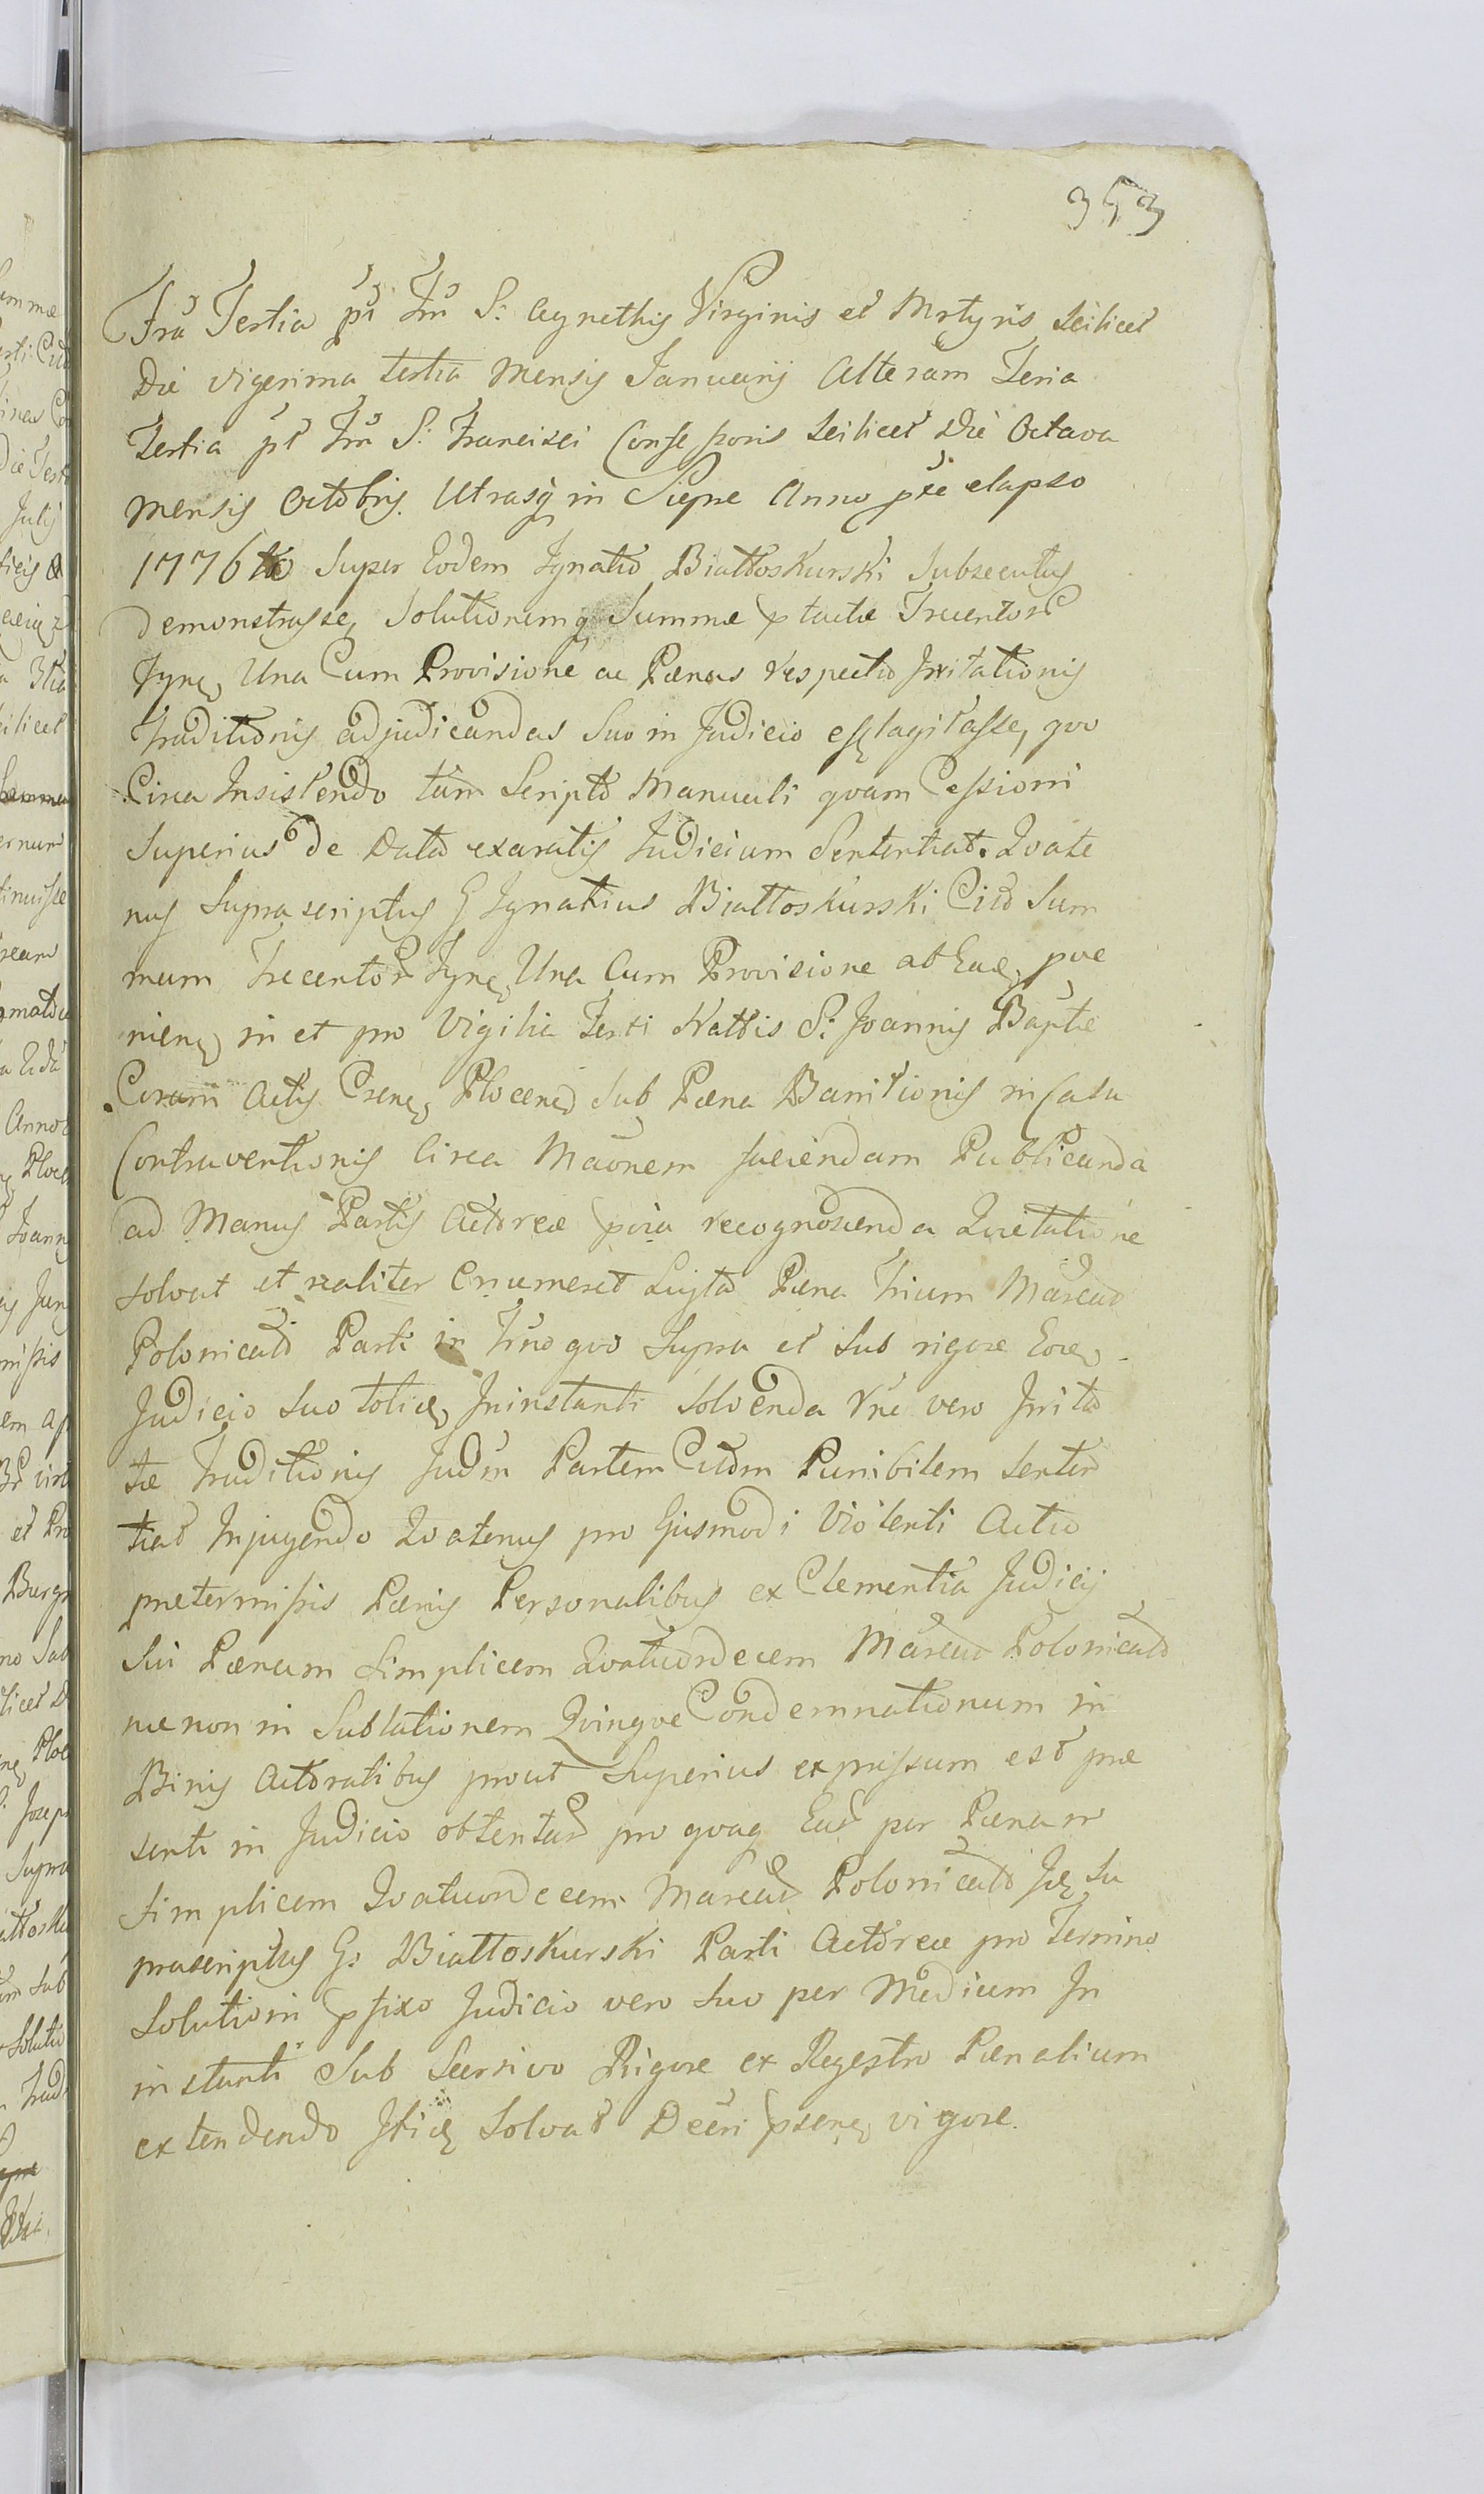 353
Fra Tertia pt Fm S: Agnethis Virginis et Mrtyris Scilicet
Die vigesima tertia Mensis Januarij Alteram Feria
Tertia pt Fm S: Francisci Confessoris Scilicet Die Octava
Mensis Octobris Utrasq in Siepre Anno pte elapso
1776to Super Eodem Ignatio Biattoskurski Subsecutas
demonstrasse, Solutionemq Summæ ptactæ Trecentor
Tyne, Una Cum Provisione ac Pænas respectu Irritationis
Traditionis adjudicandas Suo in Judicio efflagitasse, quo
Circa Insistendo tam Scripto Manuali quam Cessioni
Superius de Data exaratis Judicium Sententiat. Qvate
nus Suprascriptus G Ignatius Biattoskurski Citd Sum
mam Trecentor Tyne, Una Cum Provisione ab Ead, pve
niene, in et pro Vigilia Festi Nattis S: Joannis Baptæ
Coram Actis Csene, Plocene Sub Pæna Bannitionis in Casu
Contraventionis Circa Maonem faciendam Publicanda
ad Manus Partis Actoreæ pvia recognoscenda Qvietatione
solvat et realiter Enumeret Luyta Pæna Trium Marcar
Polonicald Parti in Trno quo Supra et Sub rigore Eoe,
Judicio Suo totid, Ininstanti Solvenda Rne vero Irrita
tæ Traditionis Judm Partem Citdm Punibilem Senten
tiat Injugendo Qvatenus pro Ejusmodi Violenti Actu
prætermissis Pænis Personalibus ex Clementia Judicij
Sui Pænam Simplicem Qvatuordecem Marcar Polonicald
nec non in Sublationem Qvinqve Condemnationum in
Binis Actoratibus prout Superius expressum est præ
senti in Judicio obtentar pro qvaq Ead par Pænam
Simplicem Qvatuordecem Marcar Polonicald Jd, Su
prascriptus G: Biattoskurski Parti Actoreæ pro Termino
Solutioni pfixo Judicio vero Suo per Medium In
instanti Sub Secrsivo Rigore ex Regestro Pænalium
extendendo Itid, Solvat Decri psene, vigore.